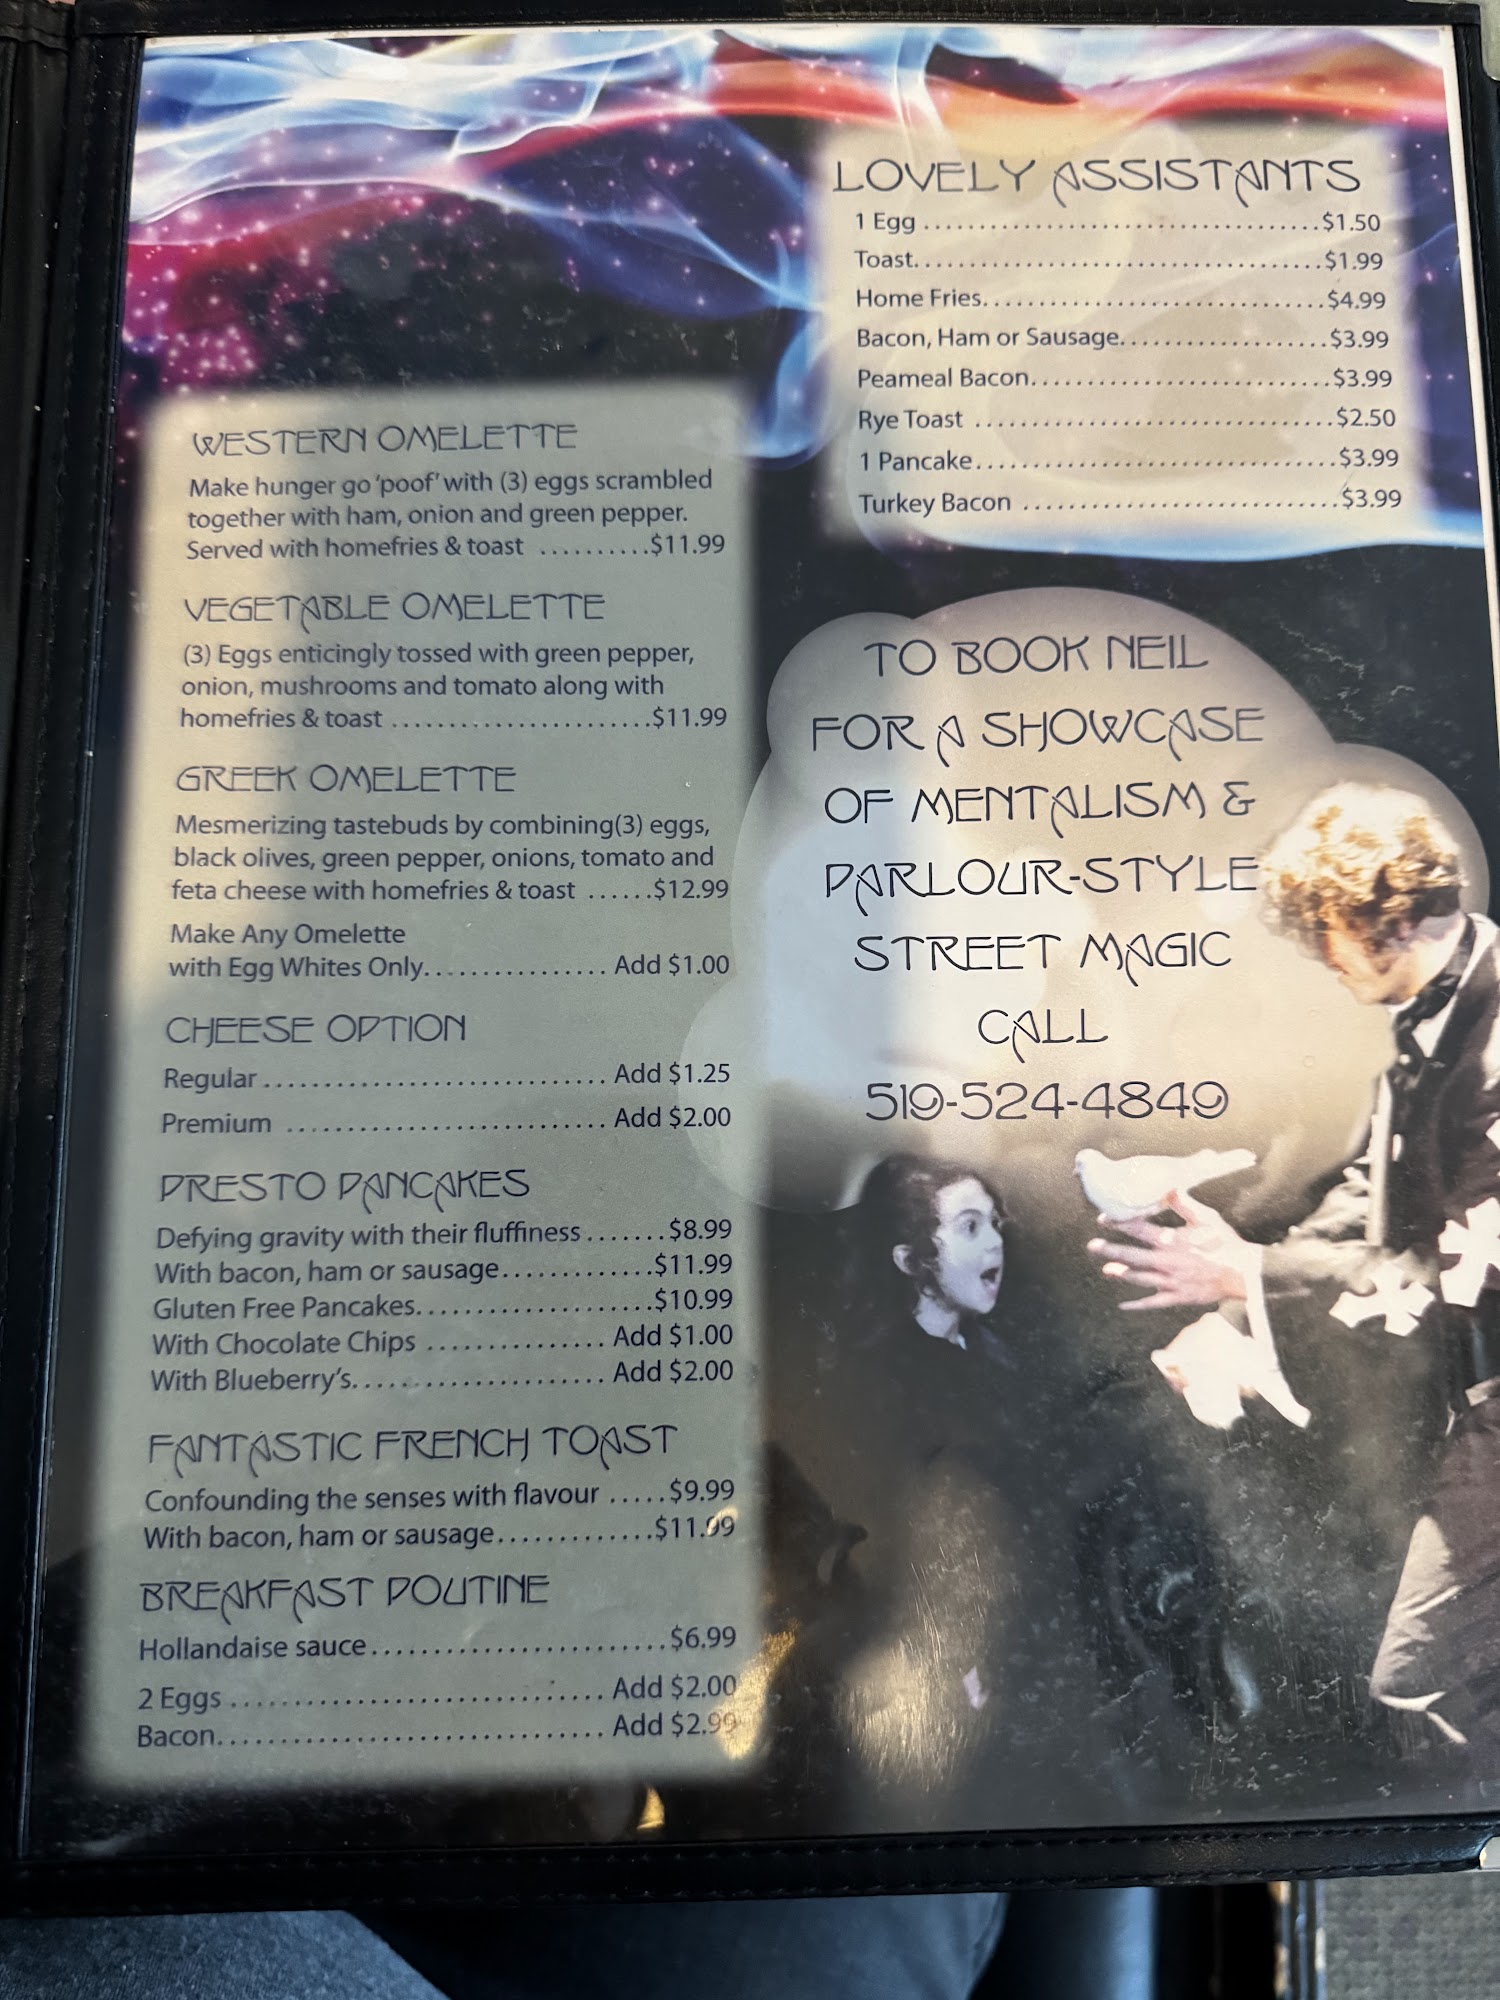 LOVELY ASSISTANTS
1 Egg ..................................... $1.50
Toast...................................... $1.99
Home Fries................................ $4.99
Bacon, Ham or Sausage.................... $3.99
Peameal Bacon............................ $3.99
Rye Toast ................................. $2.50
1 Pancake................................. $3.99
Turkey Bacon ............................. $3.99
WESTERN OMELETTE
Make hunger go 'poof' with (3) eggs scrambled
together with ham, onion and green pepper.
Served with homefries & toast .......... $11.99
VEGETABLE OMELETTE
(3) Eggs enticingly tossed with green pepper,
onion, mushrooms and tomato along with
homefries & toast ........................ $11.99
GREEK OMELETTE
Mesmerizing tastebuds by combining(3) eggs,
black olives, green pepper, onions, tomato and
feta cheese with homefries & toast ...... $12.99
Make Any Omelette
with Egg Whites Only................ Add $1.00
CHEESE OPTION
Regular ............................... Add $1.25
Premium ............................. Add $2.00
PRESTO PANCAKES
Defying gravity with their fluffiness ....... $8.99
With bacon, ham or sausage............. $11.99
Gluten Free Pancakes..................... $10.99
With Chocolate Chips ............... Add $1.00
With Blueberry's...................... Add $2.00
FANTASTIC FRENCH TOAST
Confounding the senses with flavour ..... $9.99
With bacon, ham or sausage............. $11.99
BREAKFAST POUTINE
Hollandaise sauce......................... $6.99
2 Eggs ................................. Add $2.00
Bacon.................................. Add $2.99
TO BOOK NEIL
FOR A SHOWCASE
OF MENTALISM &
PARLOUR-STYLE
STREET MAGIC
CALL
519-524-4849